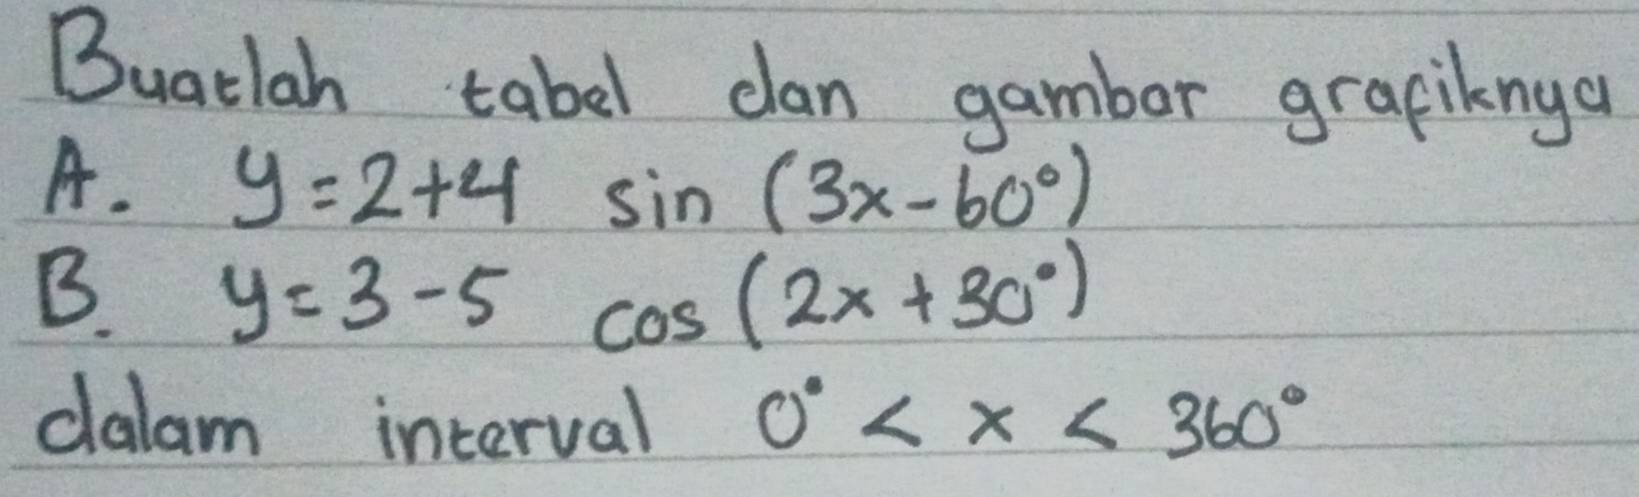 Buatlah tabel dan gambar grafiknya
A. y = 2 + 4 sin (3x - 60°)
B. y = 3 - 5 cos (2x + 30°)
dalam interval 0° < x < 360°